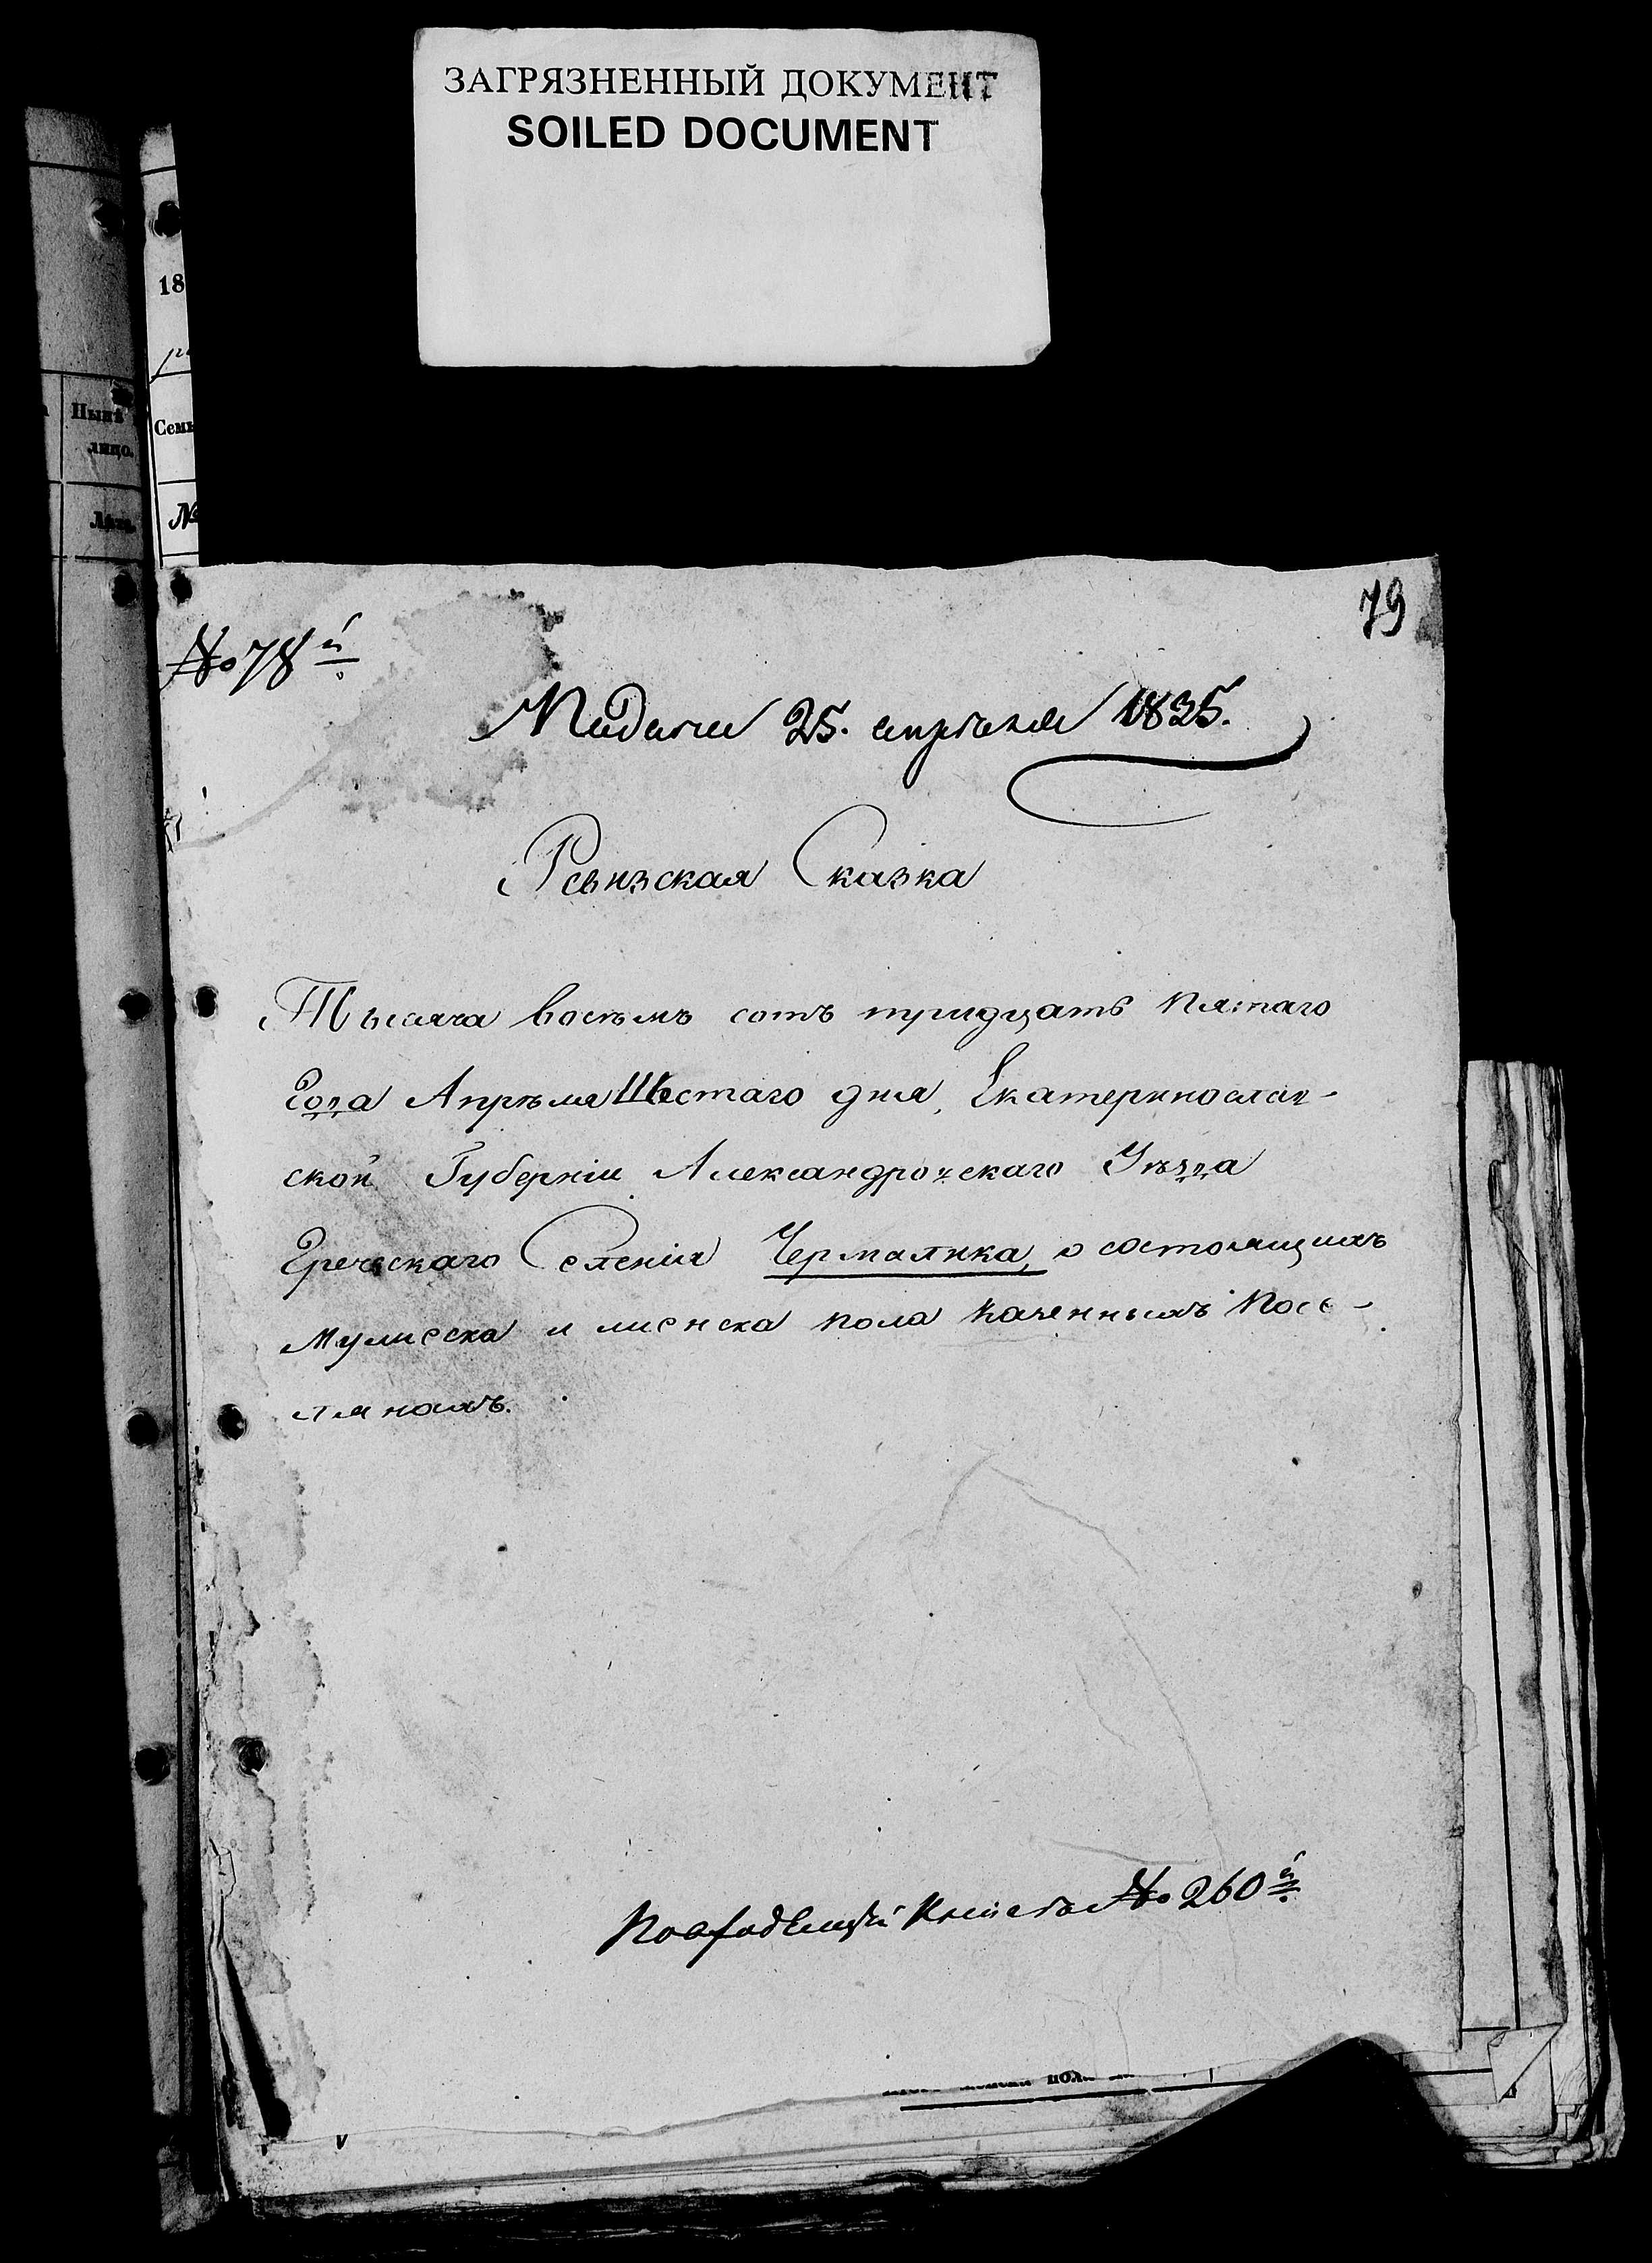 ЗАГРЯЗНЕННЫЙ ДОКУМЕНТ
SOILED DOCUMENT
18
Нынѣ
лицо.
Семь
Лѣта.
№
79
№ 78й
Подана 25. апрѣля 1835.
Ревизская Сказка
Тысяча восемь сотъ тридцать пятаго
Года Апрѣля Шестаго дня, Екатеринослав-
ской Губерніи Александровскаго Уѣзда
Греческаго Селенія Чермалика, о состоящихъ
мужеска и женска пола казенныхъ посе-
лянахъ.
№ 260й